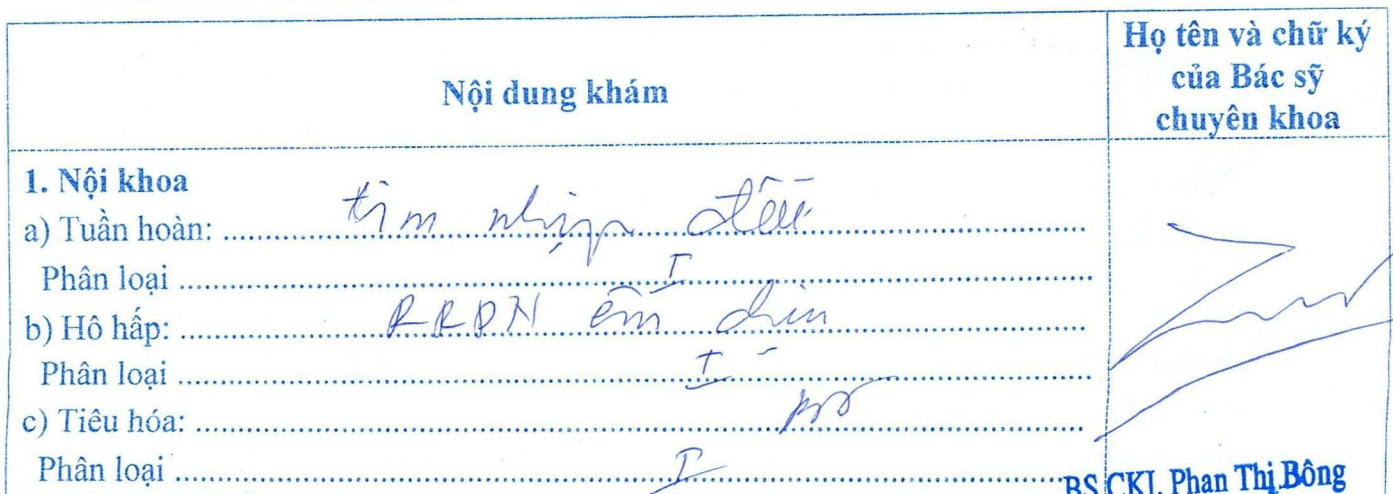 Nội dung khám
Họ tên và chữ ký
của Bác sỹ
chuyên khoa
1. Nội khoa
a) Tuần hoàn: tim nhịp đều
Phân loại I
b) Hô hấp: RRPN êm dịu
Phân loại I
c) Tiêu hóa:
Phân loại I
BS CKI. Phan Thị Bông